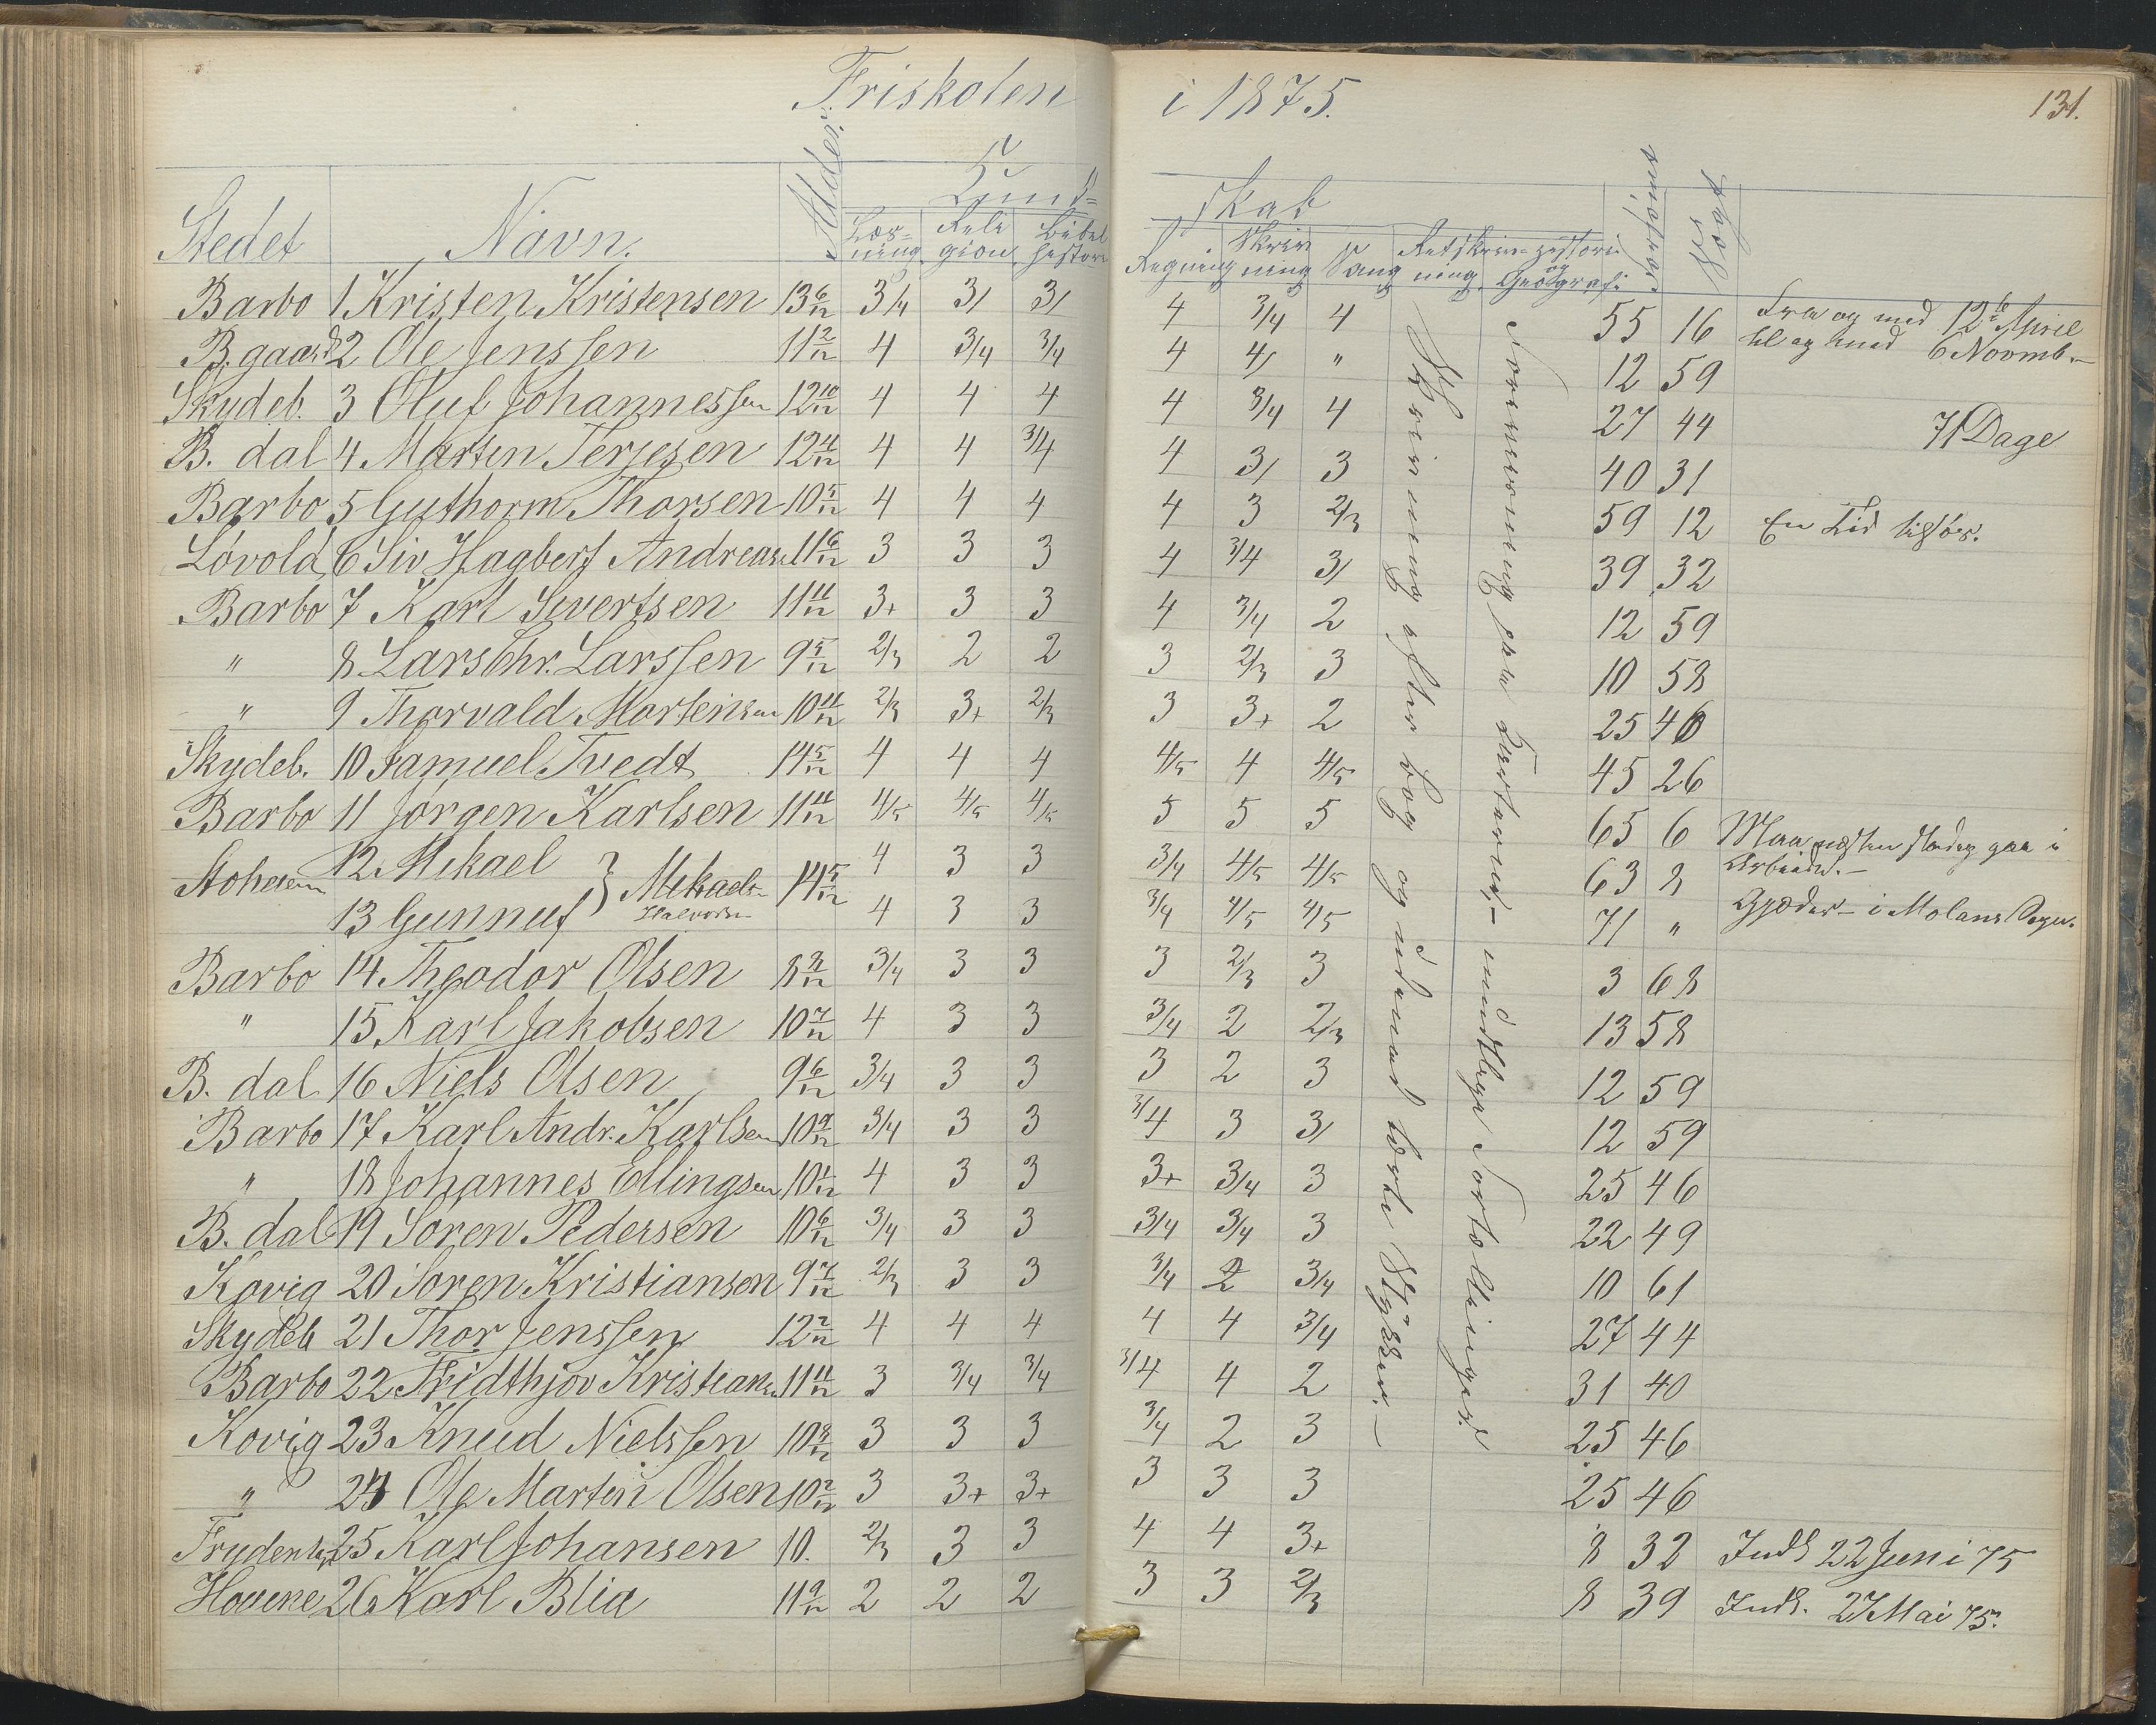 Friskolen i 1875. 131.
Stedet Navn. Alder. Kund= skab Forsømt Mødt
Læs= ning Reli gion Bibel historie Regning Skriv ning Sang Retskriv= ning Historie og Geografi
Barbo 1 Kristen Kristensen 13 6/12 3/4 3/ 3/ 4 3/4 4 55 16 Fra og med 12te April
til og med 6 Novmb.
B. gaard 2 Ole Jenssen 11 2/12 4 3/4 3/4 4 4/ " 12 59
Skydeb. 3 Oluf Johannessen 12 10/12 4 4 4 4 3/4 4 27 44 71 Dage
B. dal 4 Martin Terjesen 12 4/12 4 4 3/4 4 3/ 3 40 31
Barbo 5 Guthorm Thorsen 10 5/12 4 4 4 4 3 2/3 59 12 En Tid tilsjøs.
Lövold 6 Siv Hagbert Andreasen 11 6/12 3 3 3 4 3/4 3/ 39 32
Barbo 7 Karl Sivertsen 11 11/12 3+ 3 3 4 3/4 2 12 59
" 8 Lars Chr. Larssen 9 5/12 2/3 2 2 3 2/3 3 10 58
" 9 Thorvald Mortensen 10 11/12 2/3 3+ 2/3 3 3+ 2 25 46
Skydeb. 10 Samuel Tvedt 14 5/12 4 4 4 4/5 4 4/5 45 26
Barbo 11 Jörgen Karlsen 11 11/12 4/5 4/5 4/5 5 5 5 65 6 Maa næsten stadig gaa i
Arbeide.-
12 Mikael 4 3 3 3/4 4/5 4/5 63 8
14 5/12
13 Gunnuf 4 3 3 3/4 4/5 4/5 71 "
Barbo 14 Theodor Olsen 8 8/12 3/4 3 3 3 2/3 3 3 68
" 15 Karl Jakobsen 10 7/12 4 3 3 3/4 2 2/3 13 58
B. dal 16 Niels Olsen 9 6/12 3/4 3 3 3 2 3 12 59
Barbo 17 Karl Andr. Karlsen 10 9/12 3/4 3 3 3/4 3 3/ 12 59
" 18 Johannes Ellingsen 10 1/12 4 3 3 3+ 3/4 3 25 46
B. dal 19 Sören Pedersen 10 6/12 3/4 3 3 3/4 3/4 3 22 49
Kovig 20 Sören Kristiansen 9 7/12 2/3 3 3 3/4 2 3/4 10 61
Skydeb 21 Thor Jenssen 12 2/12 4 4 4 4 4 3/4 27 44
Barbo 22 Fridthjov Kristians. 11 11/12 3 3/4 3/4 3/4 4 2 31 40
Kovig 23 Knud Nielssen 10 8/12 3 3 3 3/4 2 3 25 46
" 24 Ole Martin Olsen 10 2/12 3 3+ 3+ 3 3 3 25 46
25 Karl Johansen 10. 2/3 3 3 4 4 3+ 8 32 Inds 22 Juni 75
26 Karl Blia 11 9/12 2 2 2 3 3 2/3 8 39 Inds. 27 Mai 75.
Skrivning efter Bog og udenad lærte Stykker.-
Forevisning paa Kartene,- mundtlige Fortællinger.